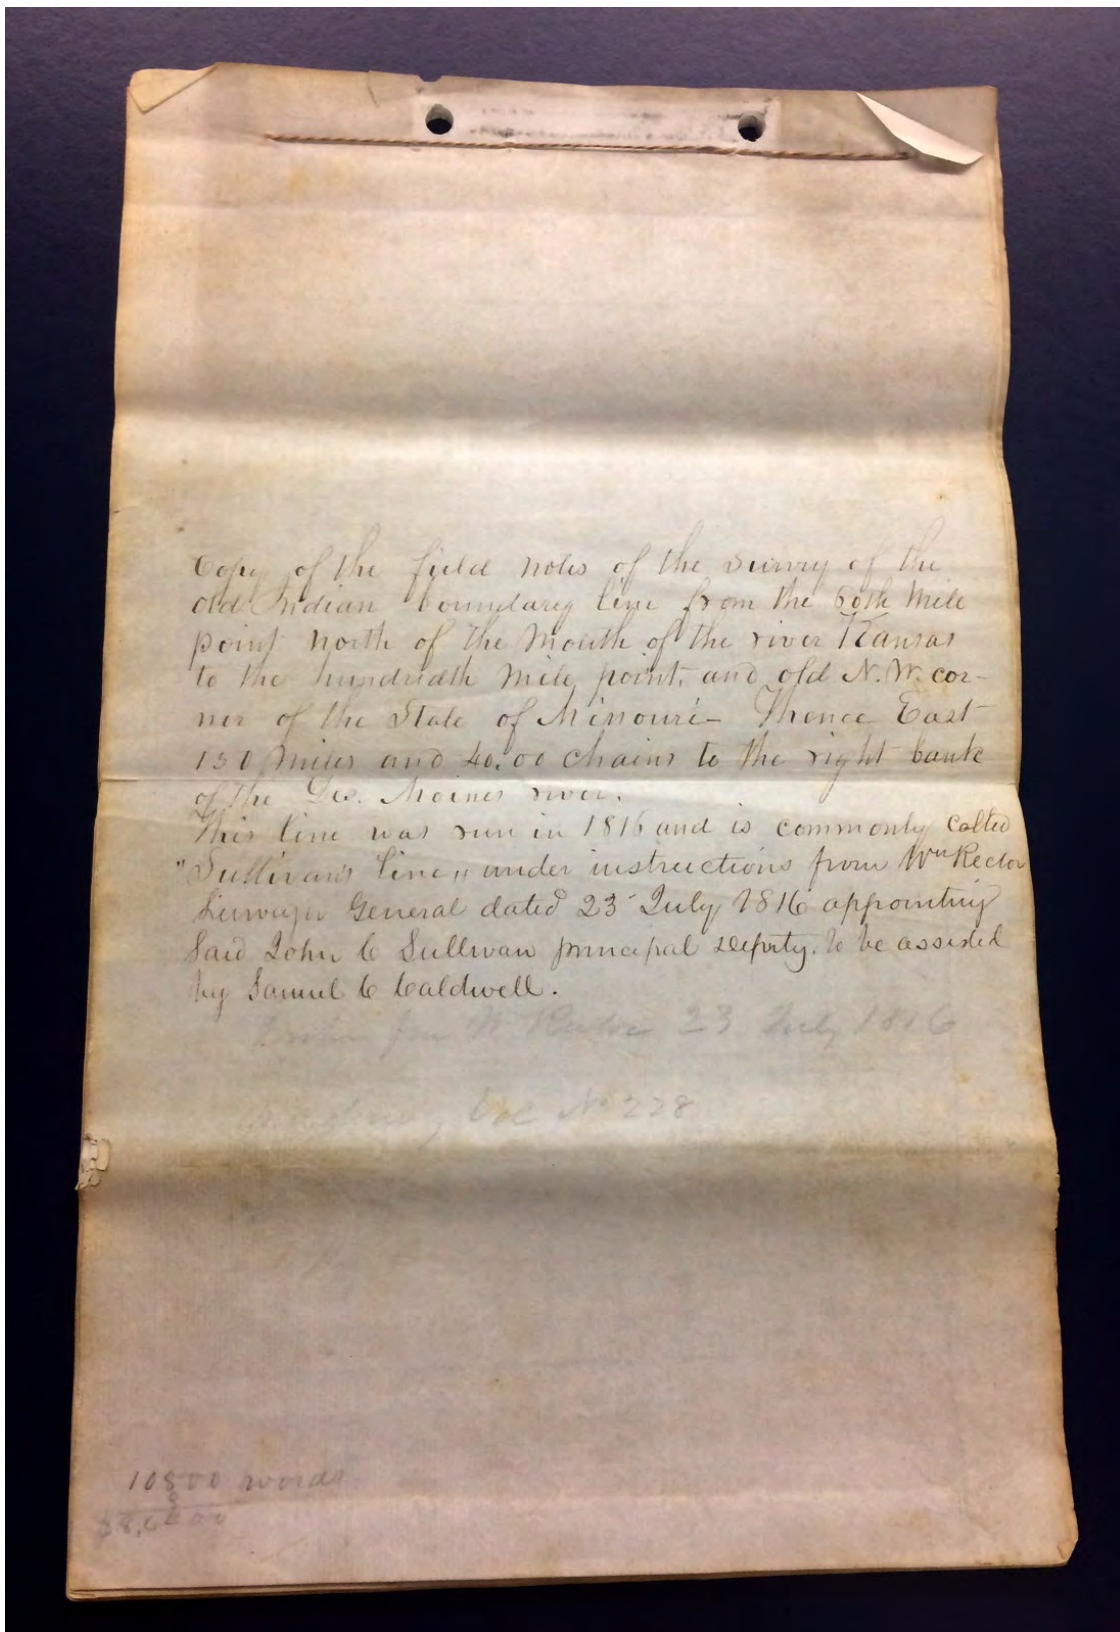 Copy of the field notes of the Survey of the
old Indian boundary line from the 60th Mile
point north of the Mouth of the river Kansas
to the hundredth Mile point, and old N.W. cor-
ner of the State of Missouri – Thence East
150 miles and 40.00 chains to the right bank
of the Des. Moines river.
This line was run in 1816 and is commonly called
"Sullivan's line" under instructions from Wm Rector
Surveyor General dated 23 July 1816 appointing
Said John C Sullivan principal Deputy. to be assisted
by Samuel C Caldwell.
W Rector 23 July 1816
No 228
10800 words